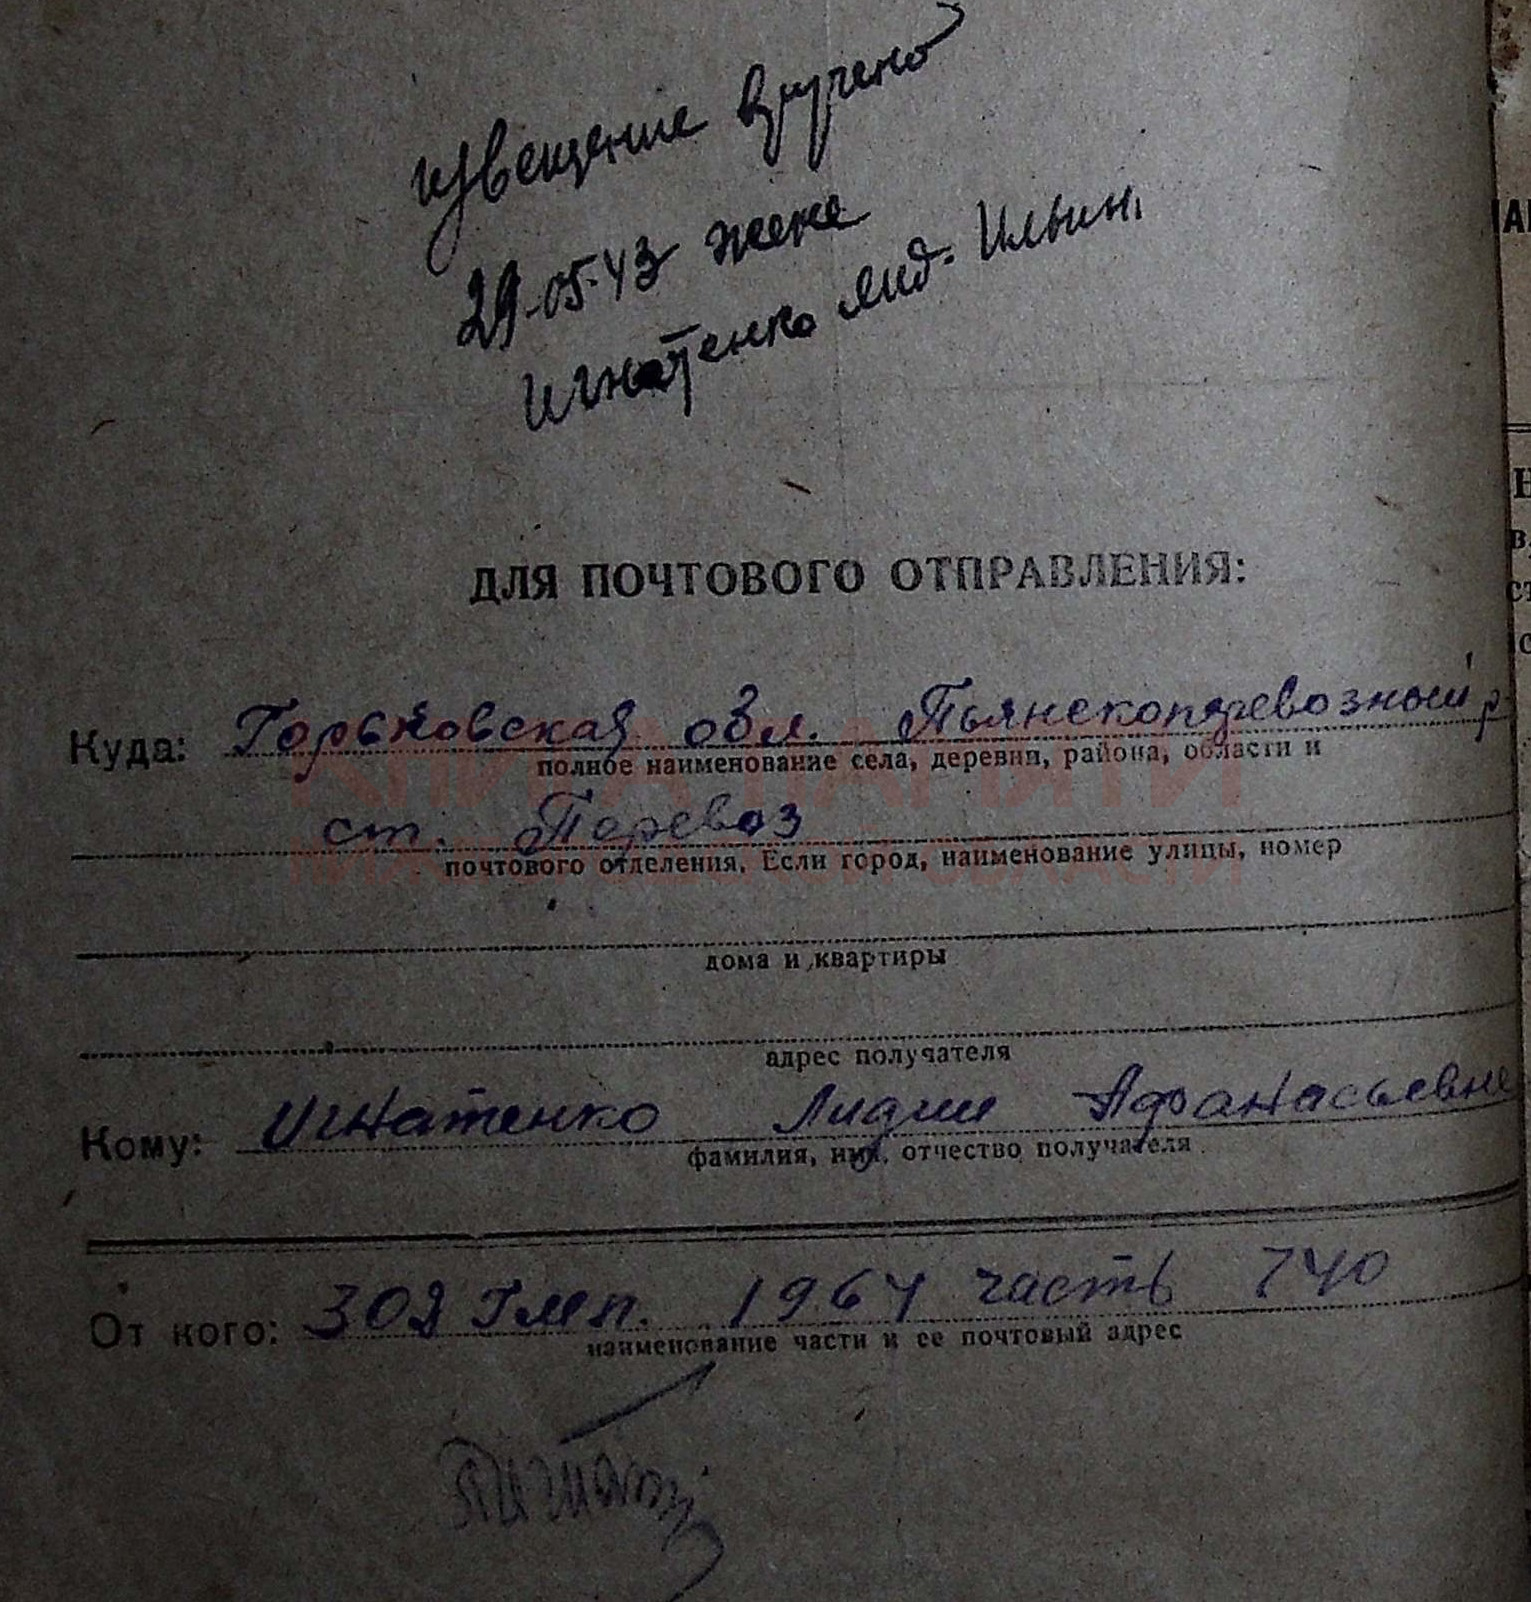 извещение вручено
29-05-43 жене
Игнатенко Лид. Ильин.
ДЛЯ ПОЧТОВОГО ОТПРАВЛЕНИЯ:
Куда: Горьковская обл. Пьянскоперевозный р-
полное наименование села, деревни, района, области и
КНИГА ПАМЯТИ
ст. Перевоз
почтового отделения, Если город, наименование улицы, номер
НИЖЕГОРОДСКОЙ ОБЛАСТИ
дома и квартиры
адрес получателя
Кому: Игнатенко Лидии Афанасьевне
фамилия, имя, отчество получателя
От кого: 302 Гмп. 1964 часть 740
наименование части и ее почтовый адрес